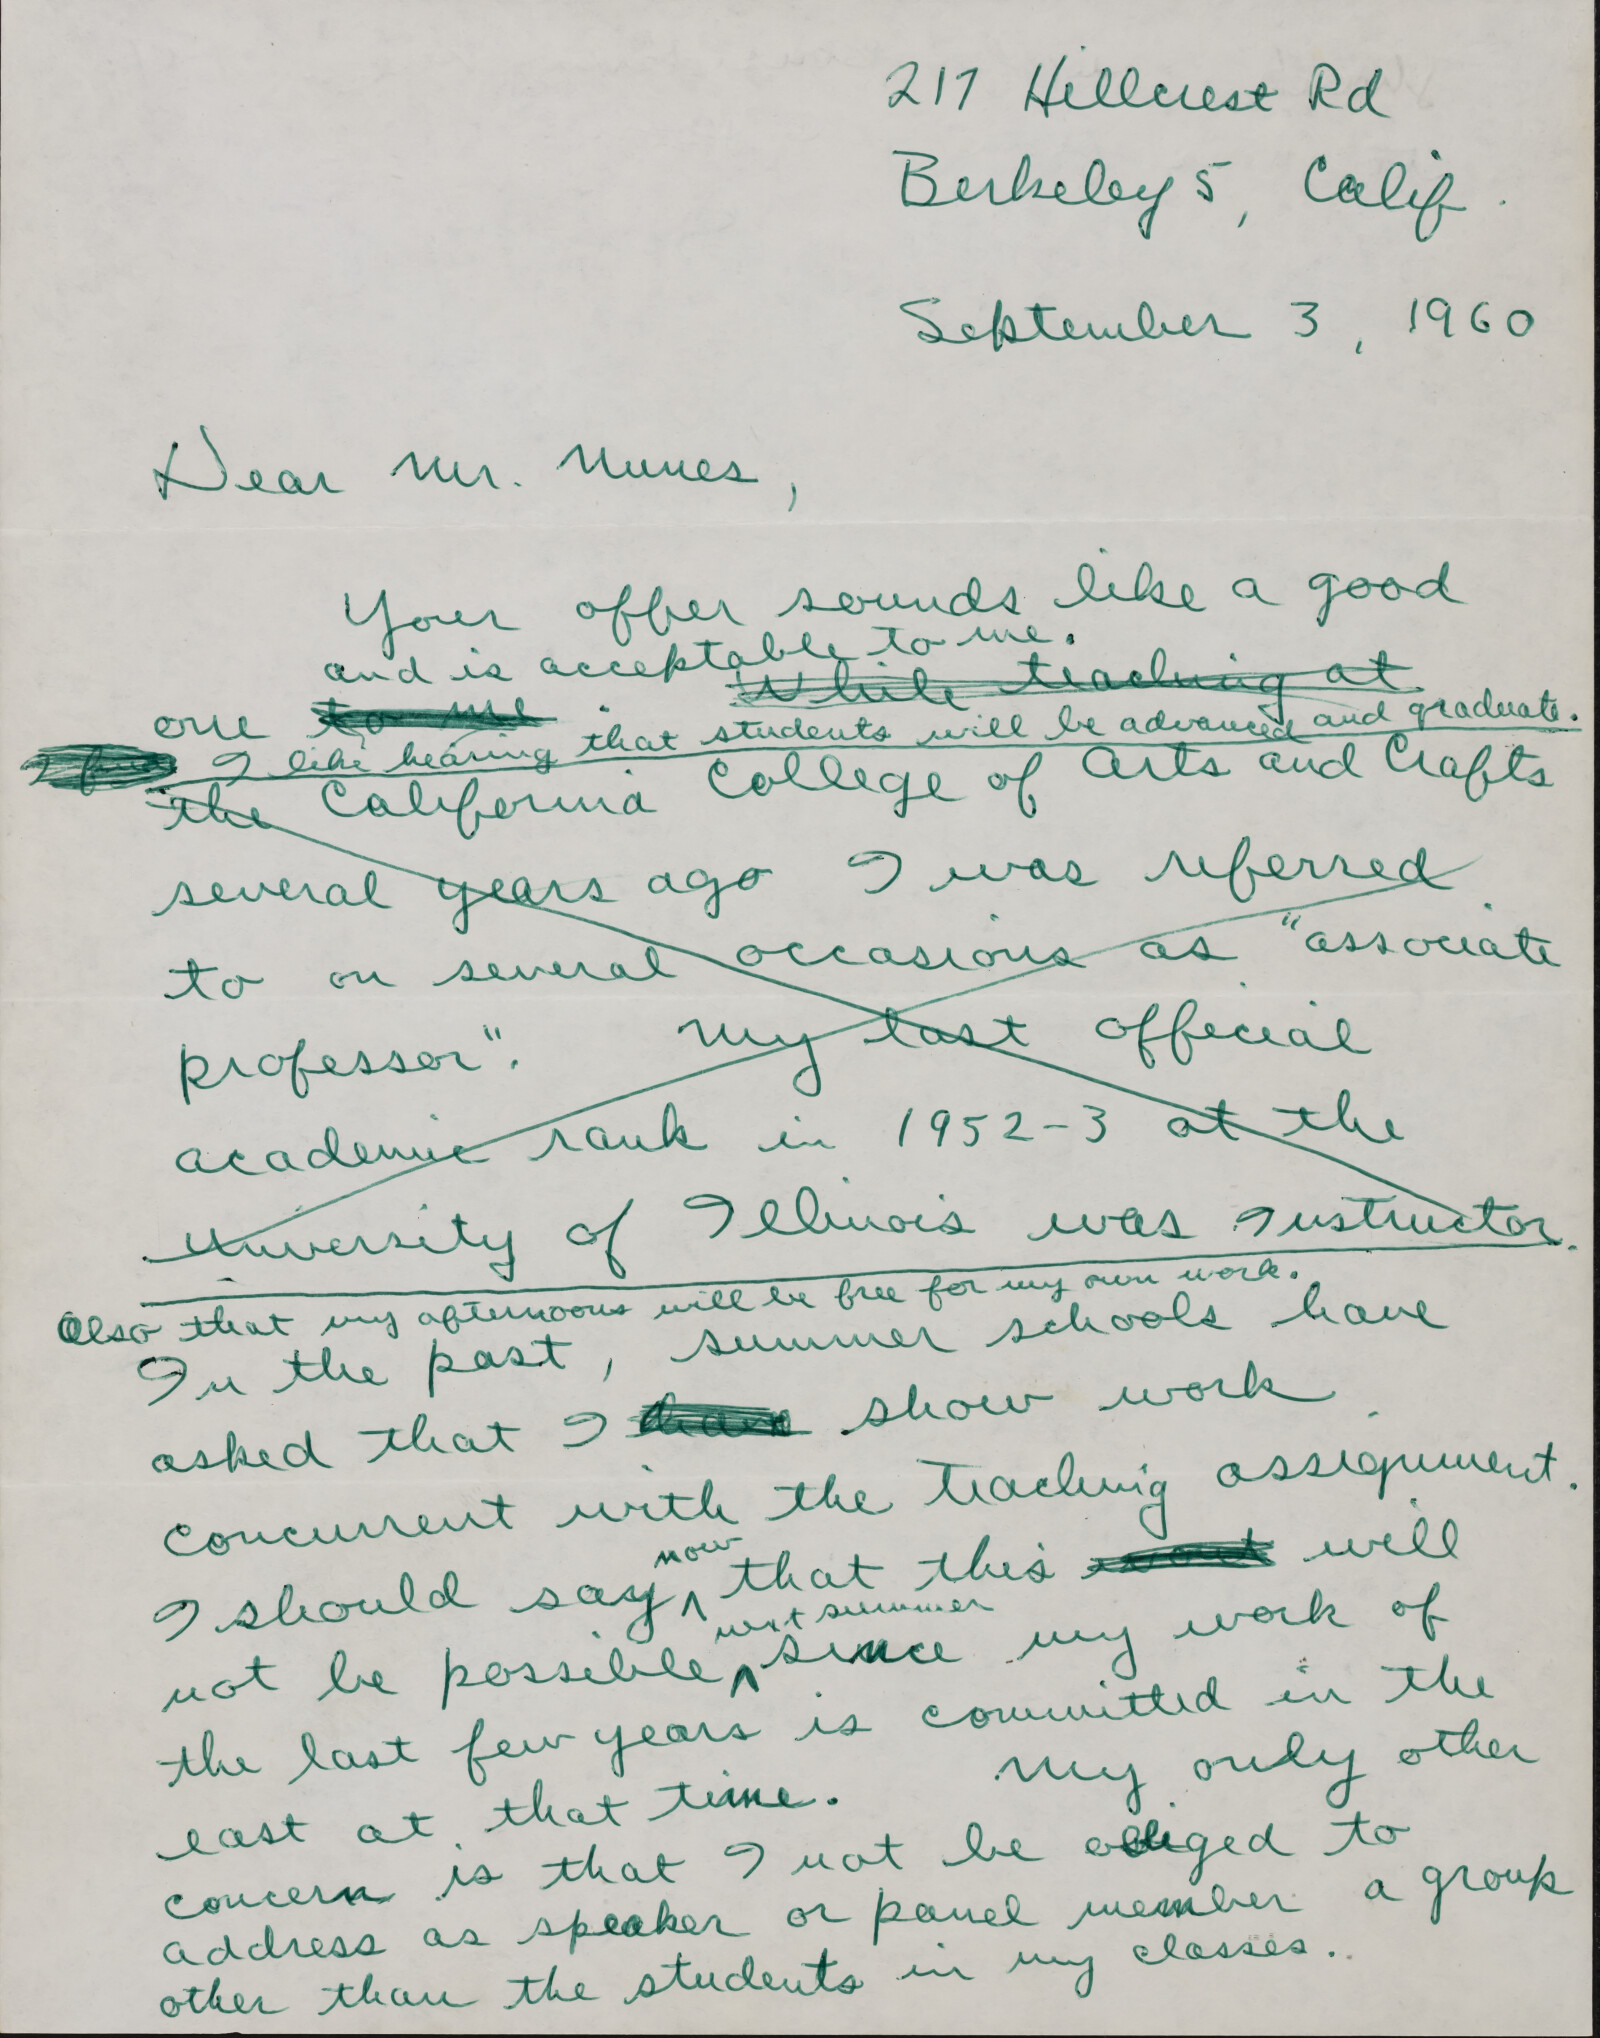 217 Hillcrest Rd
Berkeley 5, Calif.
September 3, 1960
Dear Mr. Nunes,
Your offer sounds like a good
and is acceptable to me.
one to me. While teaching at
I like hearing that students will be advanced and graduate.
the California College of Arts and Crafts
several years ago I was referred
to on several occasions as "associate
professor". My last official
academic rank in 1952-3 at the
University of Illinois was Instructor.
Also that my afternoons will be free for my own work.
In the past, summer schools have
asked that I show work
concurrent with the teaching assignment.
now
I should say that this will
next summer
not be possible since my work of
the last few years is committed in the
east at that time. My only other
concern is that I not be obliged to
address as speaker or panel member a group
other than the students in my classes.